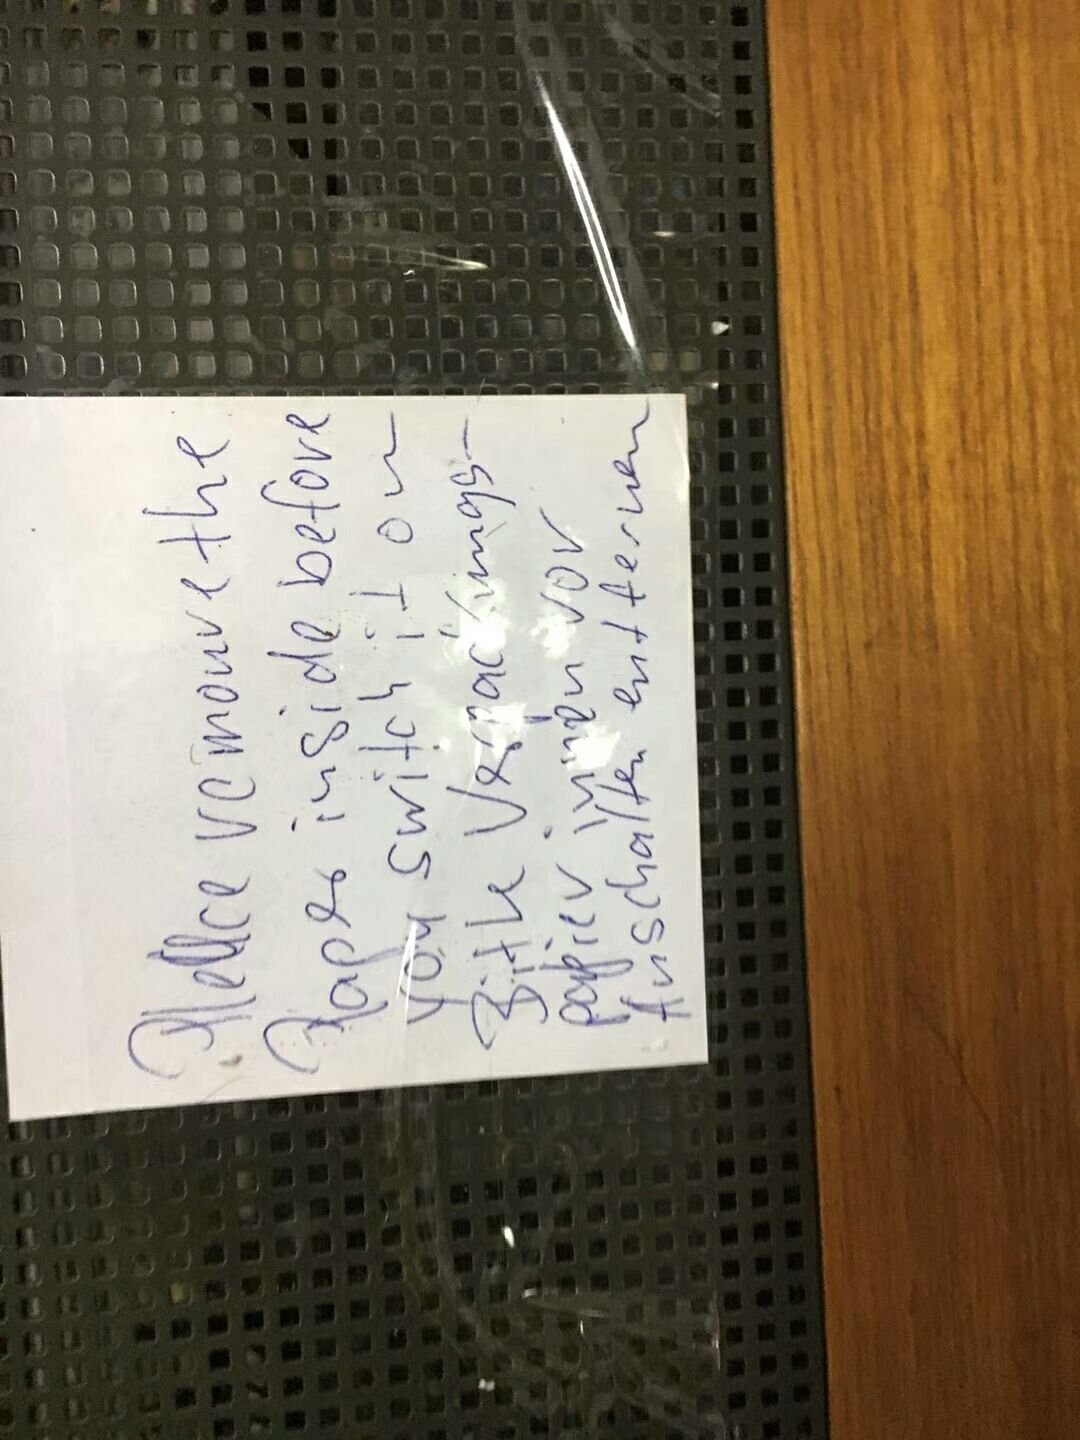 Please remouve the
Papes inside before
you switch it on
Bitte Verpackungs-
papier innen vor
Anschalten entfernen